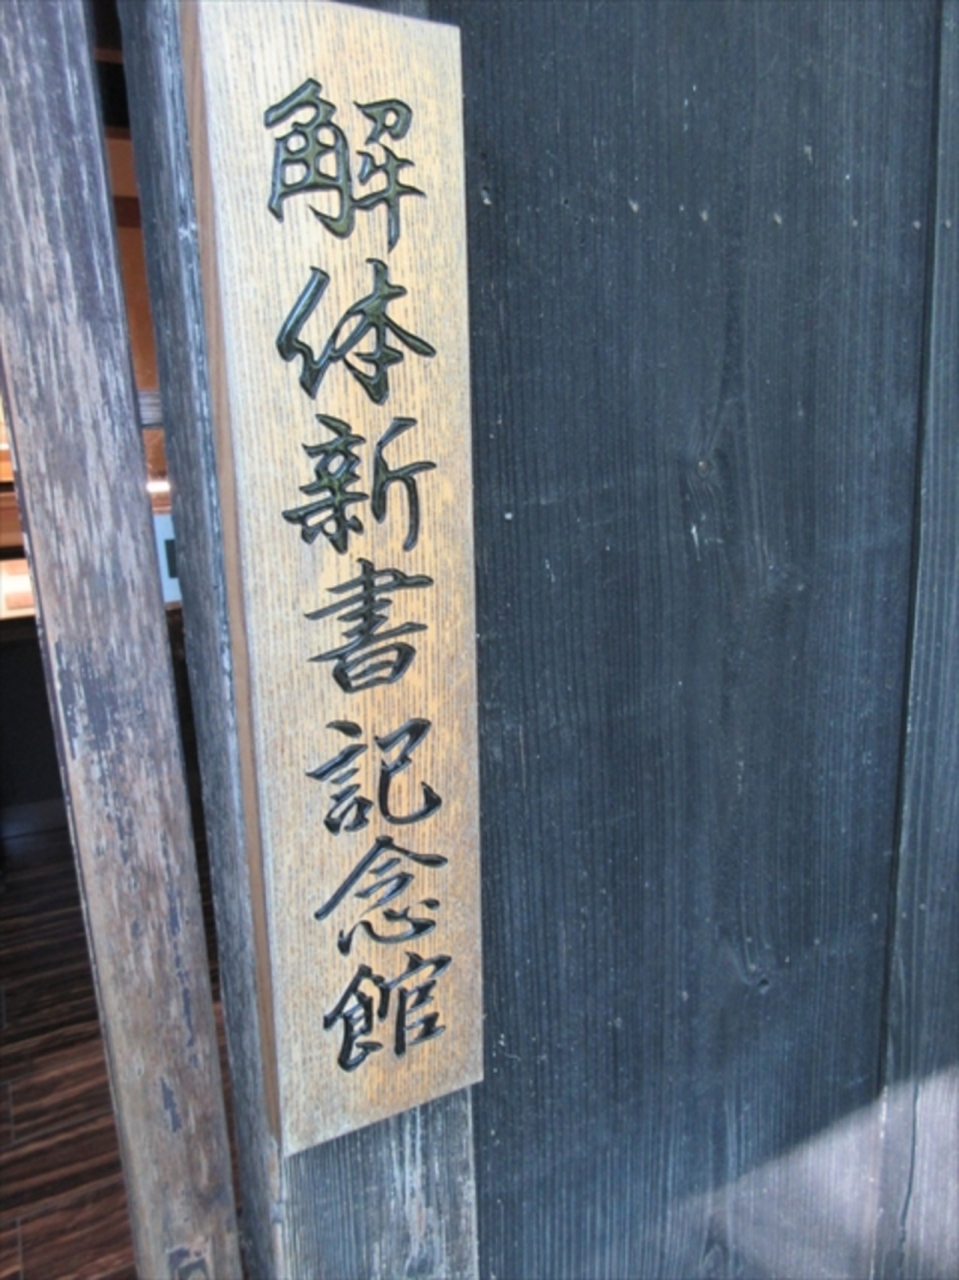 解体新書記念館